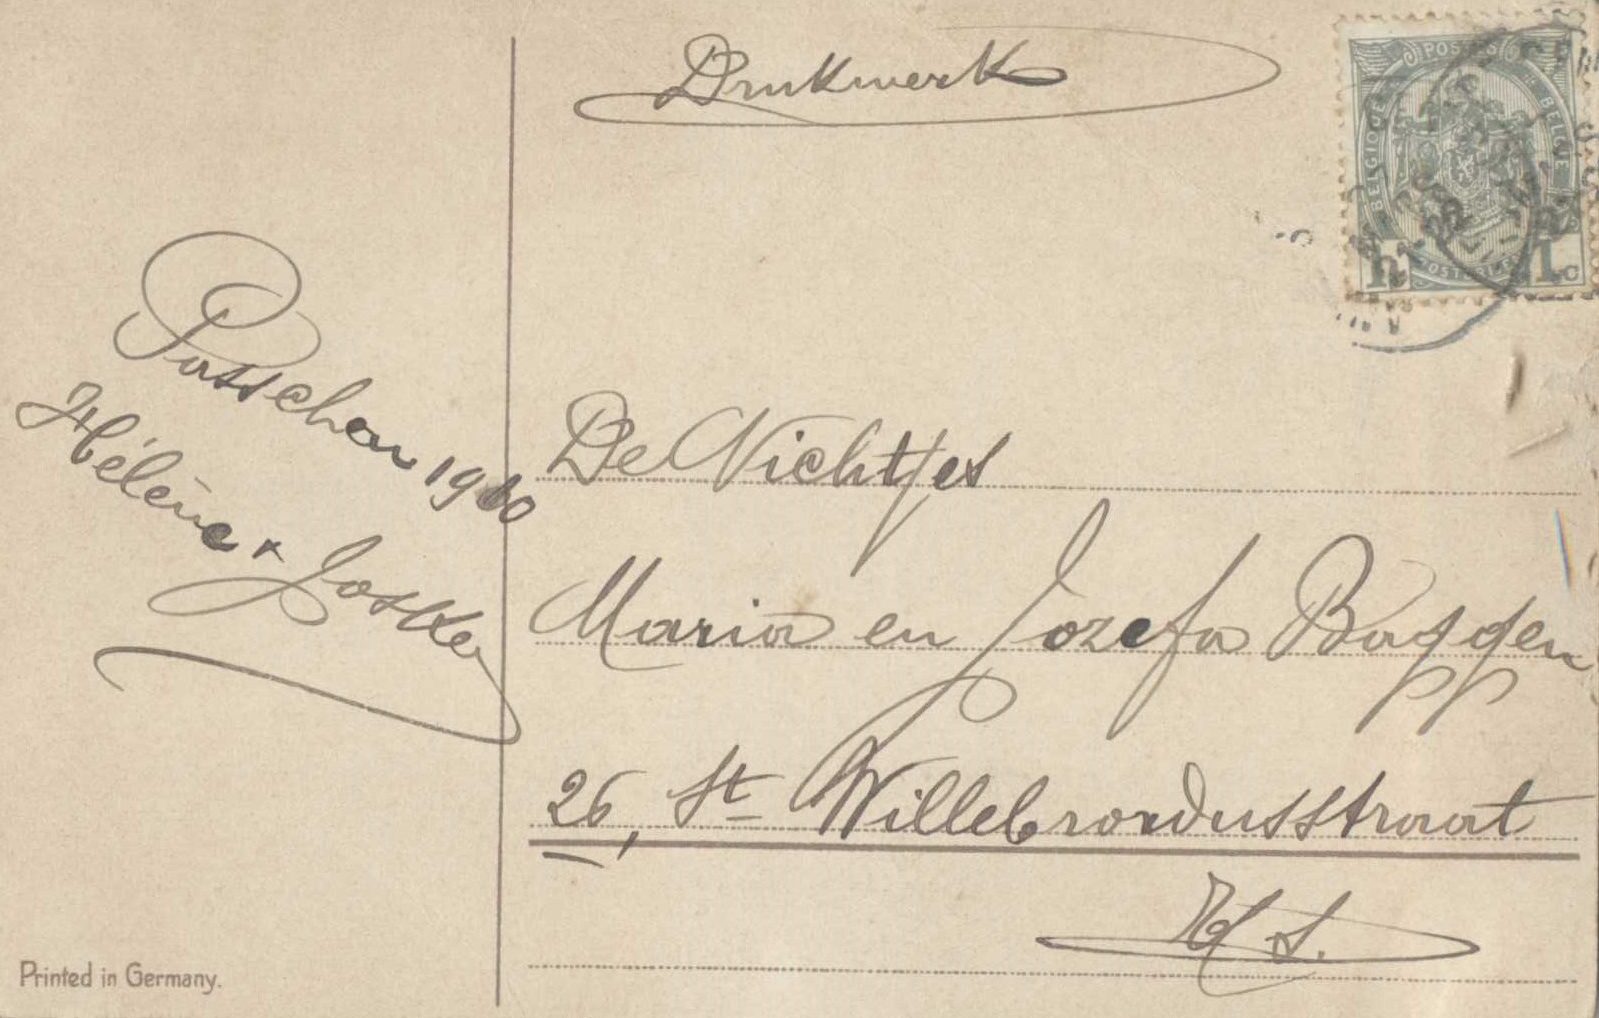 Drukwerk
POSTES
BELGIQUE
BELGIË
1 1c
Passchen 1910
Hélène & Josken
De Nichtjes
Maria en Jozefa Baggen
26, St Willebrordusstraat
H S.
Printed in Germany.